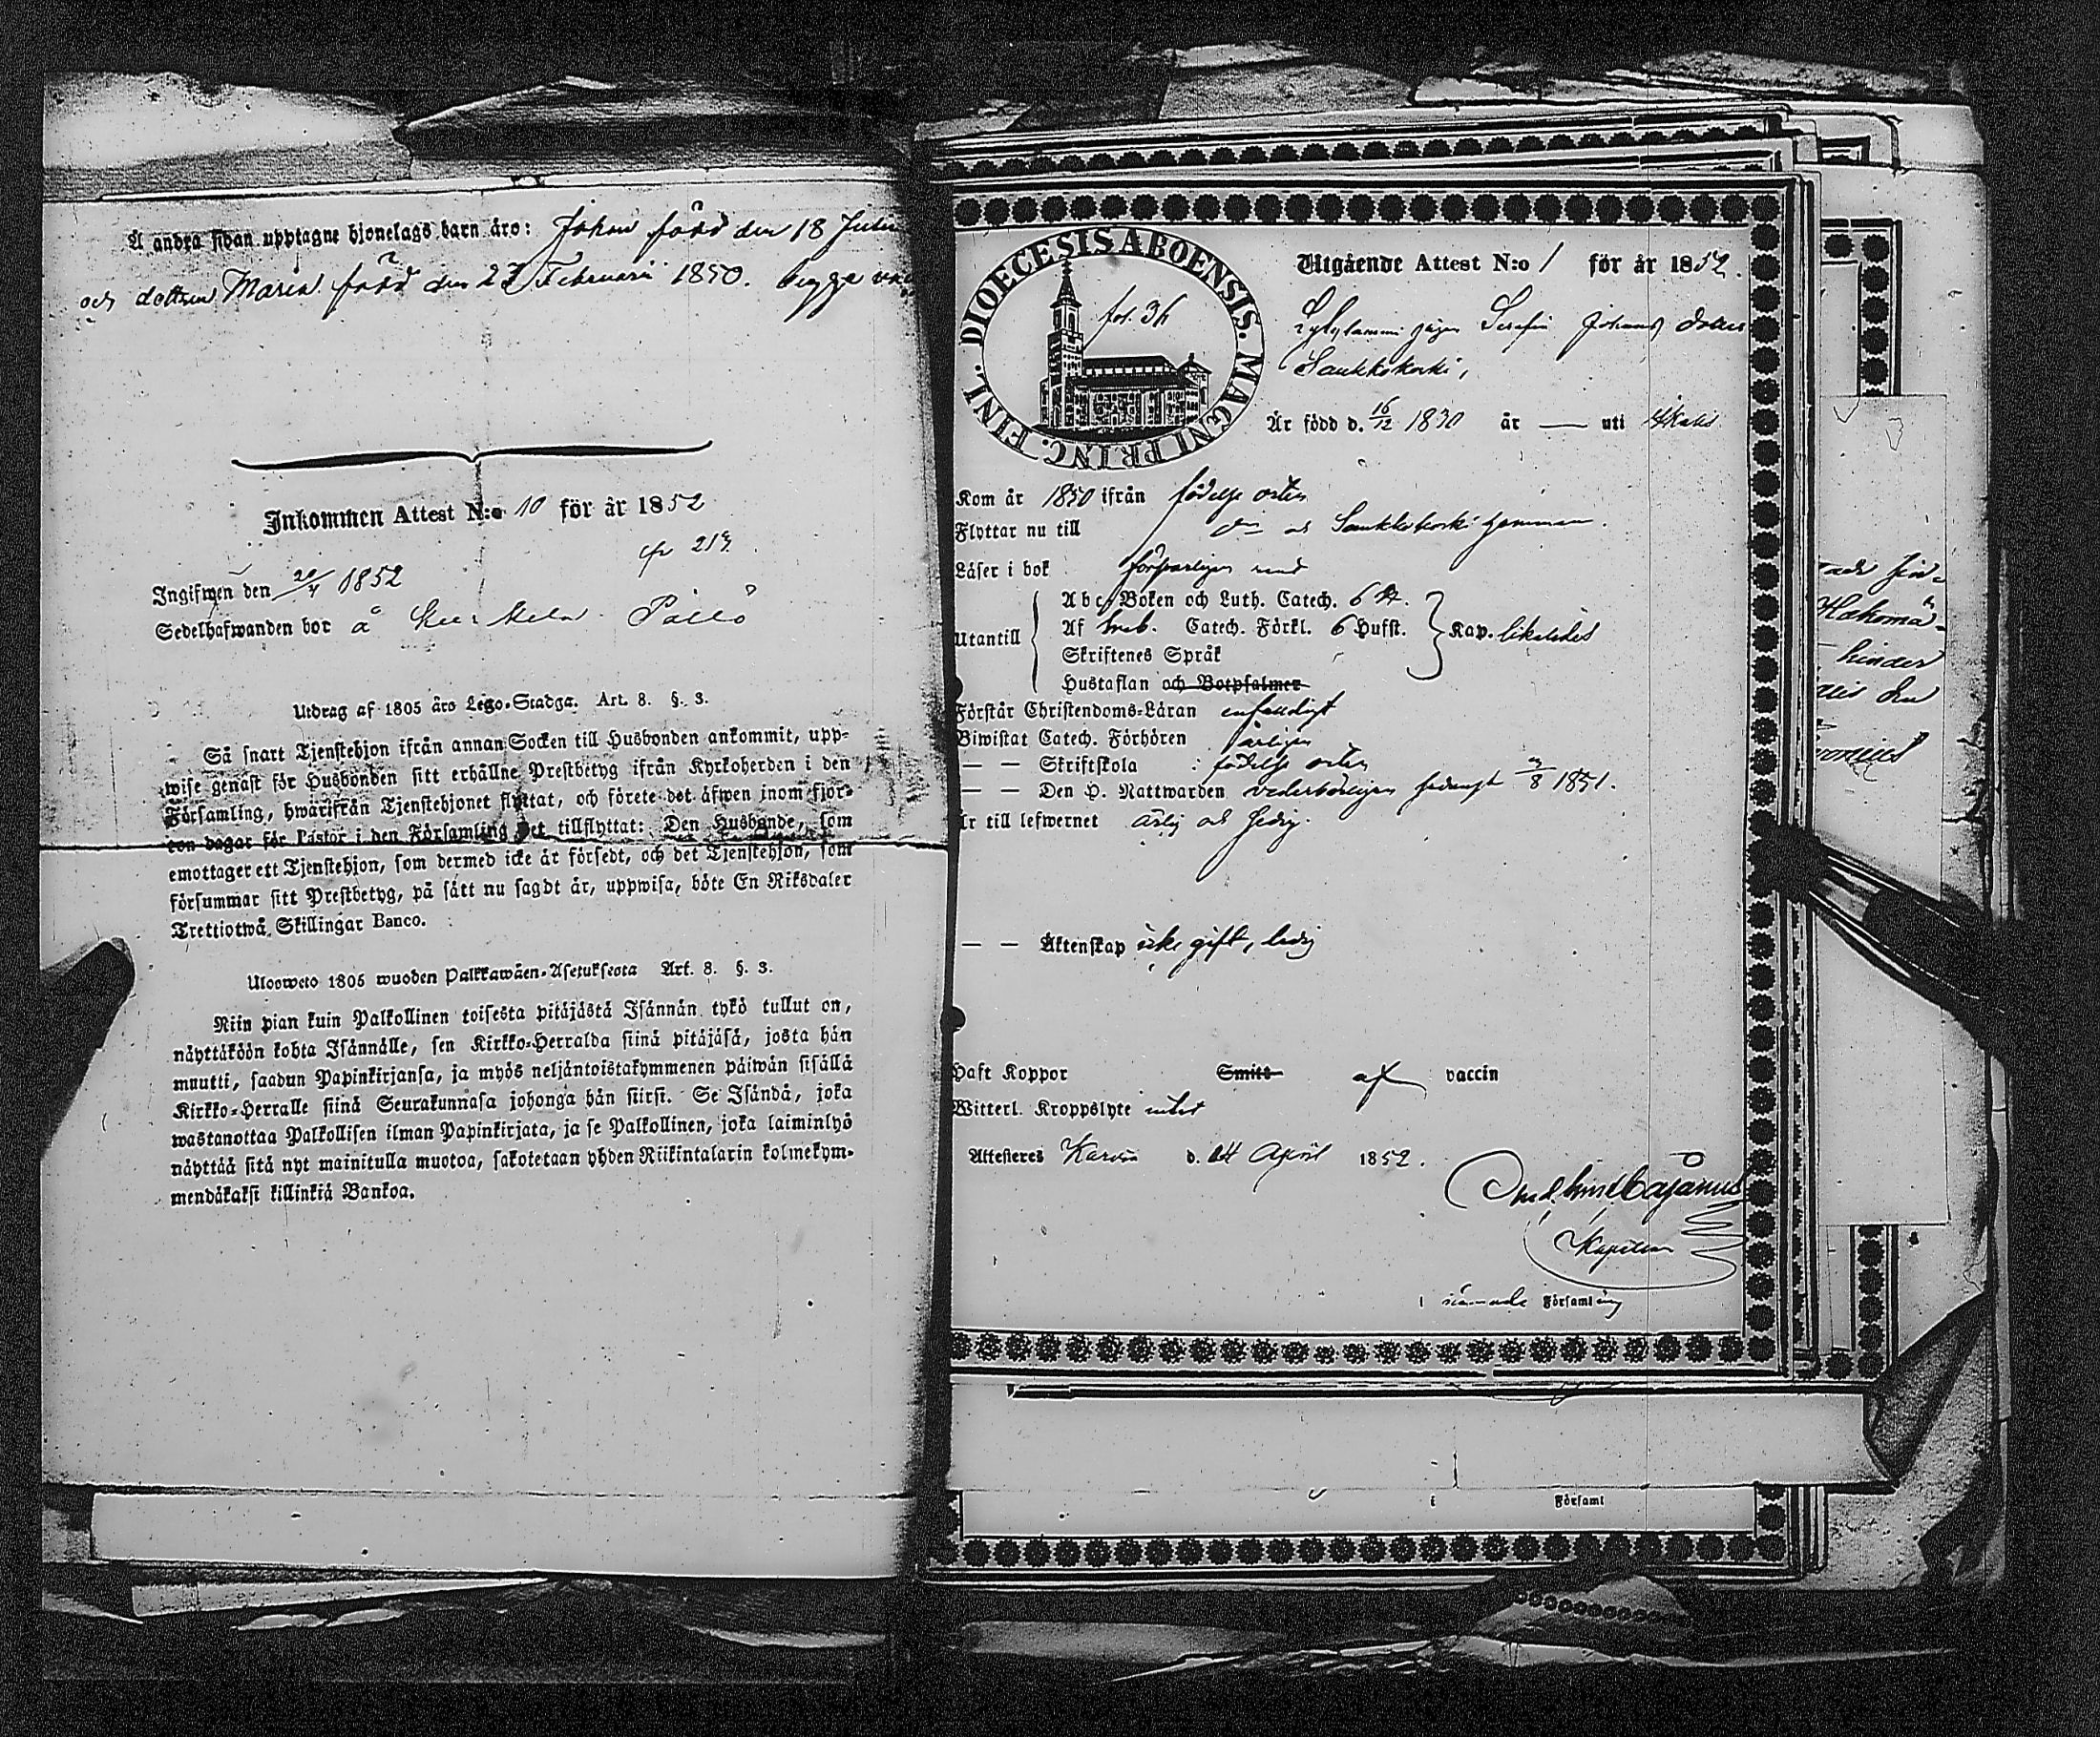 Å andra sidan upptagne hjonelags barn äro: Johan född den 18 Julii
och dottren Maria född den 27 Februarii 1850. begge
Inkommen Attest N:o 10 för år 1852
219.
Ingifwen den 20/4 1852
Sedelhafwanden bor å
Utdrag af 1805 års Lego-Stadga. Art. 8. §. 3.
Så snart Tjenstehjon ifrån annan Socken till Husbonden ankommit, upp-
wise genast för Husbonden sitt erhållne Prestbetyg ifrån Kyrkoherden i den
Församling, hwarifrån Tjenstehjonet flyttat, och förete det äfwen inom fjor-
ton dagar för Pastor i den Församling det tillflyttat: Den Husbonde, som
emottager ett Tjenstehjon, som dermed icke är försedt, och det Tjenstehjon, som
försummar sitt Prestbetyg, på sätt nu sagdt är, uppwisa, böte En Riksdaler
Trettiotwå Skillingar Banco.
Ulosweto 1805 wuoden Palkkawäen-Asetuksesta Art. 8. §. 3.
Niin pian kuin Palkollinen toisesta pitäjästä Isännän tykö tullut on,
näyttäköön kohta Isännälle, sen Kirkko-Herralda siinä pitäjäsä, josta hän
muutti, saadun Papinkirjansa, ja myös neljäntoistakymmenen päiwän sisällä
Kirkko-Herralle siinä Seurakunnasa johonga hän siirsi. Se Isändä, joka
wastanottaa Palkollisen ilman Papinkirjata, ja se Palkollinen, joka laiminlyö
näyttää sitä nyt mainitulla muotoa, sakotetaan yhden Riikintalarin kolmekym-
mendäkaksi killinkiä Bankoa.
DIOECESIS ABOENSIS. MAGNI PRINC. FINL.
fol. 36
Utgående Attest N:o 1 för år 1852.
Serafia Johans dotter
Sankkikoski,
Är född d. 16/12 1830 år — uti Ikalis
Kom år 1850 ifrån födelse orten
Flyttar nu till Sankkikoski hemman.
Läser i bok försvarligen
Utantill
Abc-Boken och Luth. Catech. 6 st.
Af Catech. Förkl. 6 Hufst. Kap. likaledes
Skriftenes Språk
Hustaflan och Botpsalmer
Förstår Christendoms-Läran enfaldigt
Biwistat Catech. Förhören årligen
— — Skriftskola i födelse orten
— — Den H. Nattwarden vederbörligen sednast 3/8 1851.
Är till lefwernet ärlig och sedig.
— — Äktenskap icke gift, ledig
Haft Koppor Smitt af vaccin
Witterl. Kroppslyte intet
Attesteres Karvia d. 14 April 1852.
Cajanus
Kapellan
i nämnde Församling
i Församl
Hakomä-
den